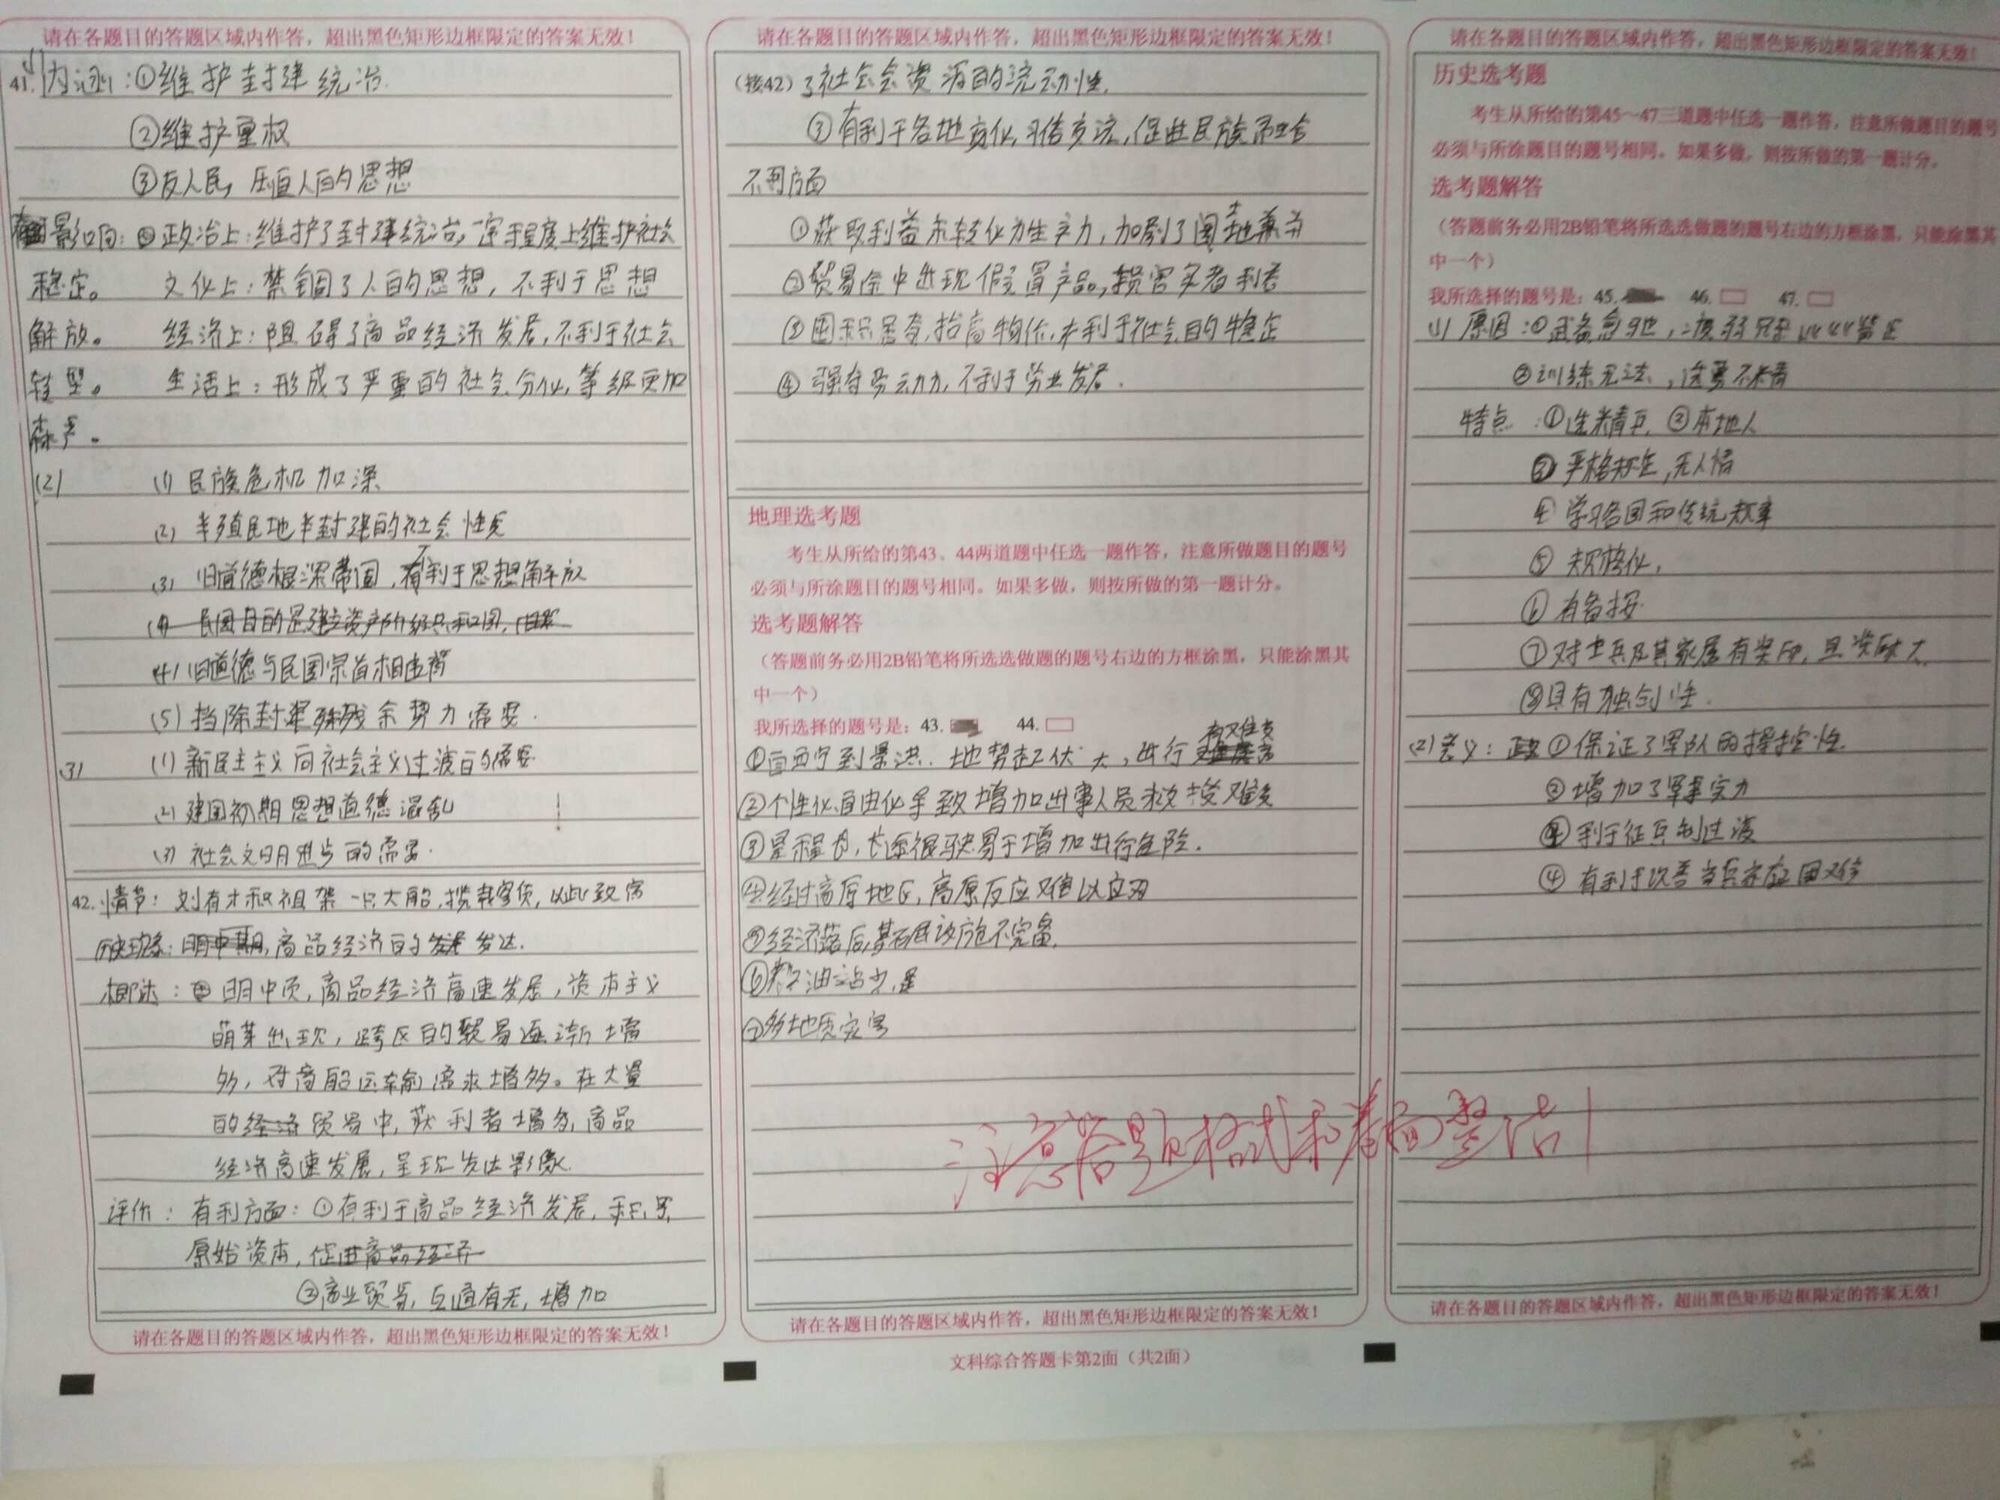 请在各题目的答题区域内作答，超出黑色矩形边框限定的答案无效！
41.(1)内涵：①维护封建统治.
②维护皇权
③反人民，压迫人的思想
影响：政治上：维护了封建统治，一定程度上维护社会
稳定。 文化上：禁锢了人的思想，不利于思想
解放。 经济上：阻碍了商品经济发展，不利于社会
转型。 生活上：形成了严重的社会分化，等级更加
森严。
(2) (1) 民族危机加深
(2) 半殖民地半封建的社会性质
(3) 旧道德根深蒂固，不利于思想解放
(4)旧道德与民国宗旨相违背
(5) 挡除封建残余势力需要.
(3) (1) 新民主主义向社会主义过渡的需要
(2) 建国初期思想道德混乱
(3) 社会文明进步的需要.
42. 情节：刘有才积祖架一只大船，揽载客货，以此致富
历史现象：明中期，商品经济的发达.
概述：明中页，商品经济高速发展，资本主义
萌芽出现，跨区的贸易逐渐增
多，对商船运输需求增多。在大量
的贸易中，获利者增多，商品
经济高速发展，呈现发达影像.
评价：有利方面：①有利于商品经济发展，积累
原始资本，促进商品经济
②商业贸易，互通有无，增加
请在各题目的答题区域内作答，超出黑色矩形边框限定的答案无效！
请在各题目的答题区域内作答，超出黑色矩形边框限定的答案无效！
(接42) 了社会会资源的流动性.
③有利于各地文化，习俗交流，促进民族融合
不利方面
①获取利益未转化为生产力，加剧了土地兼并
②贸易途中出现假冒产品，损害买者利益
③囤积居奇，抬高物价，不利于社会的稳定
④ 强夺劳动力，不利于农业发展.
地理选考题
考生从所给的第43、44两道题中任选一题作答，注意所做题目的题号
必须与所涂题目的题号相同。如果多做，则按所做的第一题计分。
选考题解答
（答题前务必用2B铅笔将所选选做题的题号右边的方框涂黑，只能涂黑其
中一个）
我所选择的题号是：43. 44.
①自西宁到景洪.地势起伏大，出行有难度
②个性化.自由化导致增加出事人员求救难度
③里程长，长途很驶易于增加出行危险.
④经过高原地区，高原反应难以应对
⑤经济落后，基础设施不完备.
⑥加油站少.
⑦多地质灾害
注意答题格式和卷面整洁！
请在各题目的答题区域内作答，超出黑色矩形边框限定的答案无效！
文科综合答题卡第2面（共2面）
请在各题目的答题区域内作答，超出黑色矩形边框限定的答案无效！
历史选考题
考生从所给的第45～47三道题中任选一题作答，注意所做题目的题号
必须与所涂题目的题号相同。如果多做，则按所做的第一题计分。
选考题解答
（答题前务必用2B铅笔将所选选做题的题号右边的方框涂黑，只能涂黑其
中一个）
我所选择的题号是：45. 46. 47.
(1) 原因：①武备怠弛，
②训练无法，选募不精
特点：①选精兵 ②本地人
③ 严格标准，无人情
④ 学习各国和传统教率
⑤ 规格化.
⑥ 有备按
⑦对士兵及其家属有奖励，且奖励大.
⑧具有独创性.
(2) 意义：①保证了军队的操控性.
②增加了军事实力
③利于征兵制过渡
④ 有利于改善当兵
请在各题目的答题区域内作答，超出黑色矩形边框限定的答案无效！